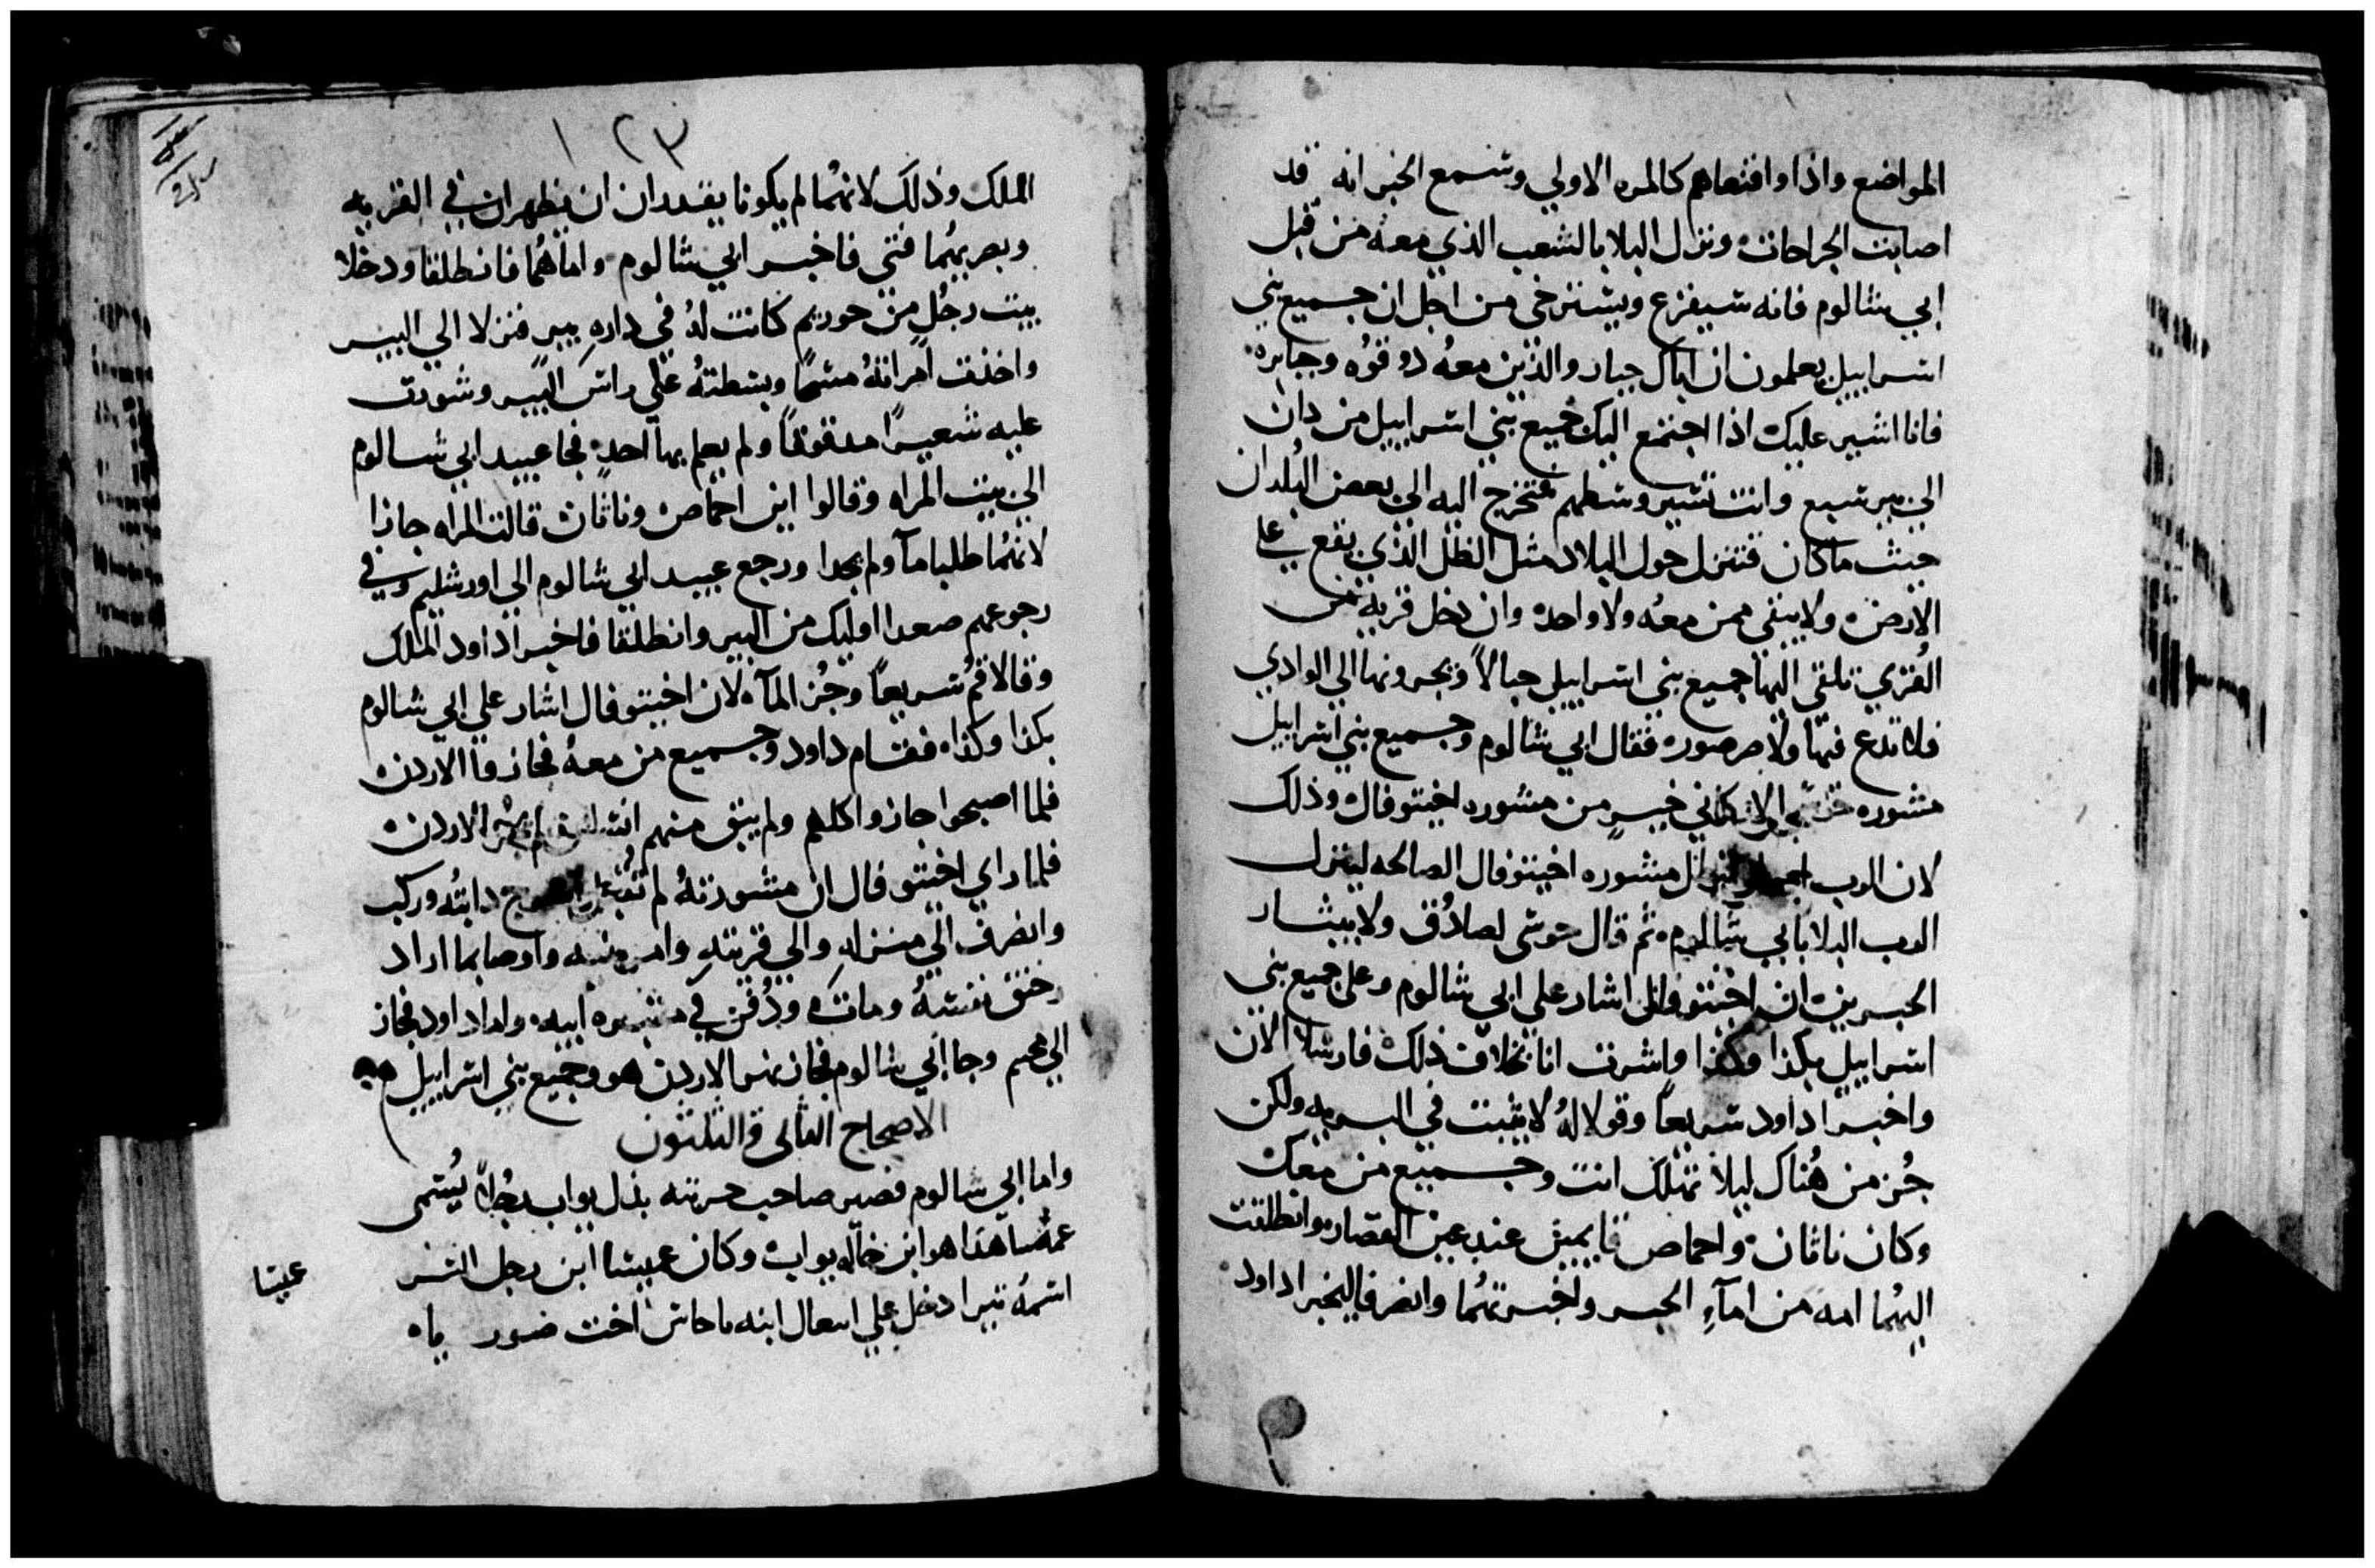 المواضع واذا واقعناهم كالمره الاولي وتسمع الخبر انه قد
اصابت الجراحات ونزل البلا بالشعب الذي معه من قبل
ابي شالوم فانه سيفزع ويسترخي من اجل ان جميع بني
اسراييل يعلمون ان اباك جبار والذين معه ذو قوه وجبابره
فانا اشير عليك اذا اجتمع اليك جميع بني اسراييل من دان
الي بير سبع وانت تسير وسطهم فتخرج اليه الي بعض البلدان
حيث ما كان فتنزل حول البلاد مثل الظل الذي يقع علي
الارض ولا يبقي ممن معه ولا واحد وان دخل قريه من
القري تلقي اليها جميع بني اسراييل حبالاً ويجرونها الي الوادي
فلا تدع فيها ولا صرصوره فقال ابي شالوم وجميع بني اسراييل
مشوره حوشي الاركاني خير من مشوره اخيتوفال وذلك
لان الرب مشوره اخيتوفال الصالحه لينزل
الرب البلا بابي شالوم ثم قال حوشي لصادق ولابيثار
الحبرين ان اخيتوفال اشار علي ابي شالوم وعلي جميع بني
اسراييل بكذا وكذا واشرت انا بخلاف ذلك فارسلا الان
واخبرا داود سريعاً وقولا لهُ لا يثبت في البريه ولكن
جُز من هُناك ليلا تهلك انت وجميع من معك
وكان ناثان واحماص قايمين عند عين القصار وانطلقت
اليهُما امه من امآءِ الحبر واخبرتهُما وانصرفا ليخبرا داود
١٢٣
الملك وذلك لانهُما لم يكونا يقدران ان يظهران في القريه
وبصر بهُما فتي فاخبر ابي شالوم واما هُما فانطلقا ودخلا
بيت رجُلٍ من حوريم كانت لهُ في دارهِ بير فنزلا الي البير
واخذت امراتهُ مسحاً وبسطتهُ علي راس البير وشورت
عليه شعيراً مدقوقاً ولم يعلم بها احد فجا عبيد ابي شالوم
الي بيت المراه وقالوا اين احماص وناثان قالت المراه جازا
لانهُما طلبا مآ ولم يجدا ورجع عبيد ابي شالوم الي اورشليم وفي
رجوعهم صعدا اوليك من البير وانطلقا فاخبرا داود الملك
وقالا قُم سريعاً وجُز المآء لان اخيتوفال اشار علي ابي شالوم
بكذا وكذا فقام داود وجميع من معهُ فجازوا الاردن
فلما اصبحوا جازوا كلهم ولم يبق منهم انسان لم يجز الاردن
فلما راي اخيتوفال ان مشورتهُ لم تُقبل دابتُه وركب
وانصرف الي منزلهِ والي قريتهِ وامر بنيه واوصا بما اراد
وخنق نفسهُ ومات ودُفن في مقبره ابيه واما داود فجاز
الي محيم وجا ابي شالوم فجاز نهر الاردن هو وجميع بني اسراييل معه
الاصحاح الثاني والثلثون
واما ابي شالوم فصير صاحب حربته بدل يواب رجُلاً يُسمي
عمسا هذا هو ابن خاله يواب وكان عبيسا ابن رجل اسر
عبيسا
اسمهُ تيرا دخل علي ابيعال ابنه ناحاس اخت صوريا